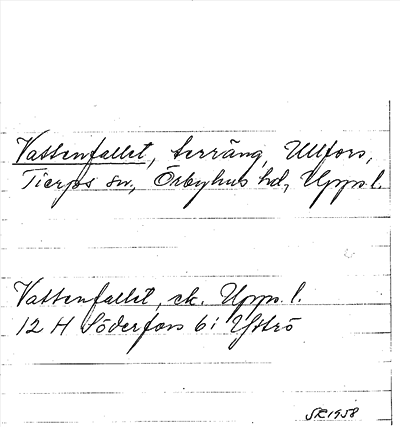 Vattenfallet, terräng, Ullfors,
Tierps sn, Örbyhus hd, Upps.l.
Vattenfallet, ek. Upps.l.
12 H Söderfors 6i Ytbrö
SR1958